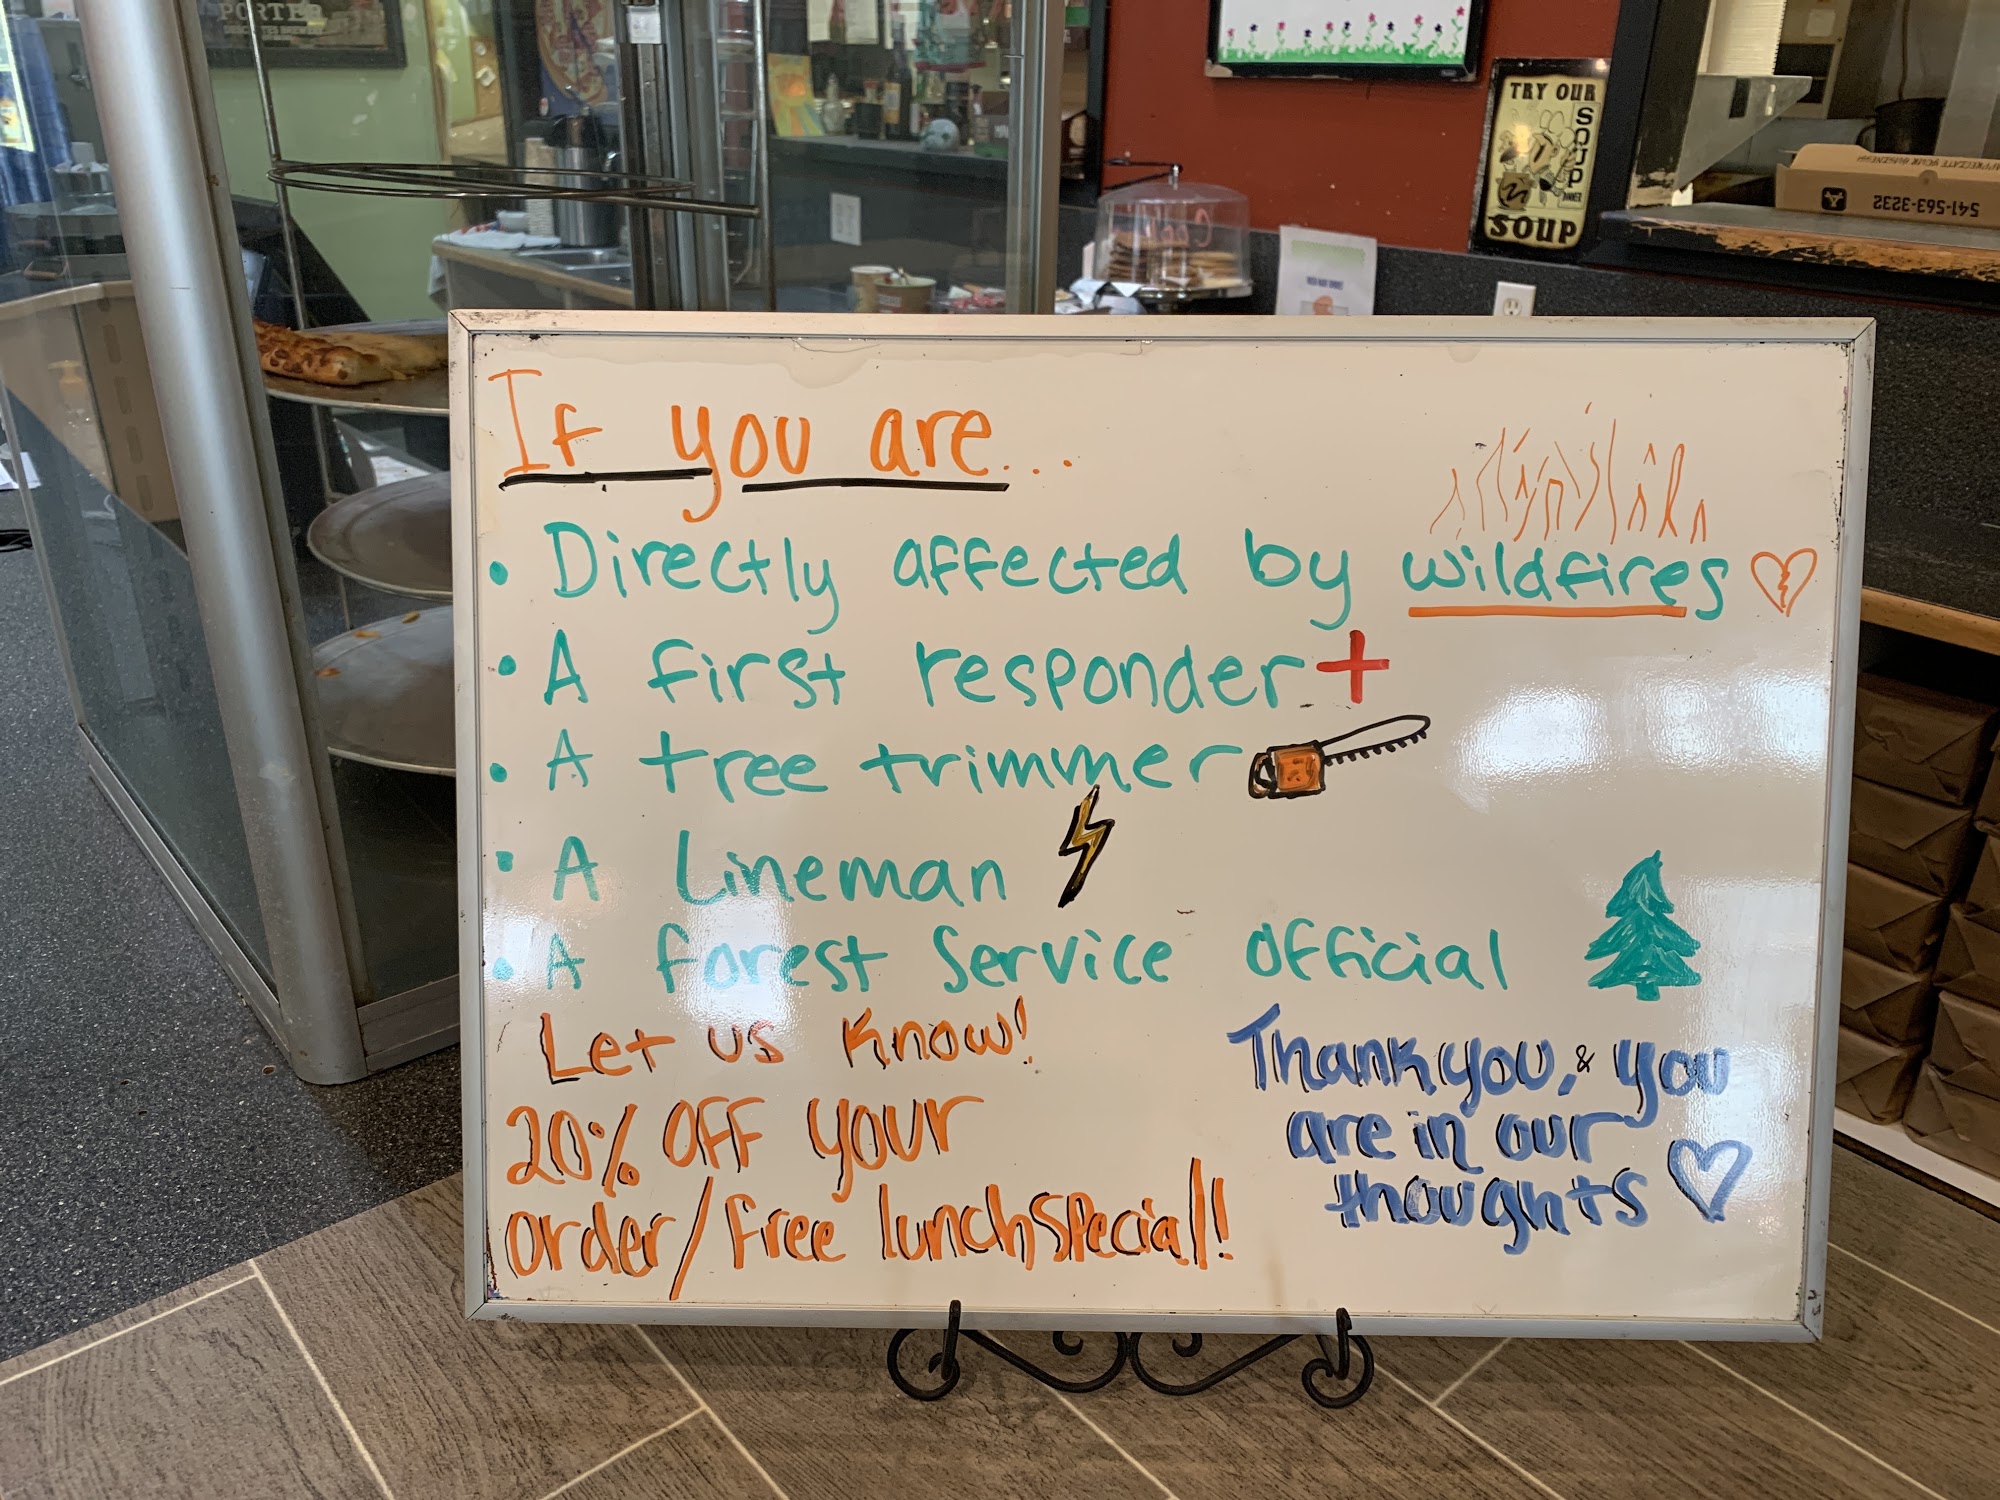 PORTER
TRY OUR
SOUP
DINNER
SOUP
APPRECIATE YOUR BUSINESS
541-563-3232
If you are...
• Directly affected by wildfires
• A first responder +
• A tree trimmer
• A Lineman
• A forest Service official
Let us know!
20% OFF your
order/free lunch special!
Thank you, & you
are in our
thoughts